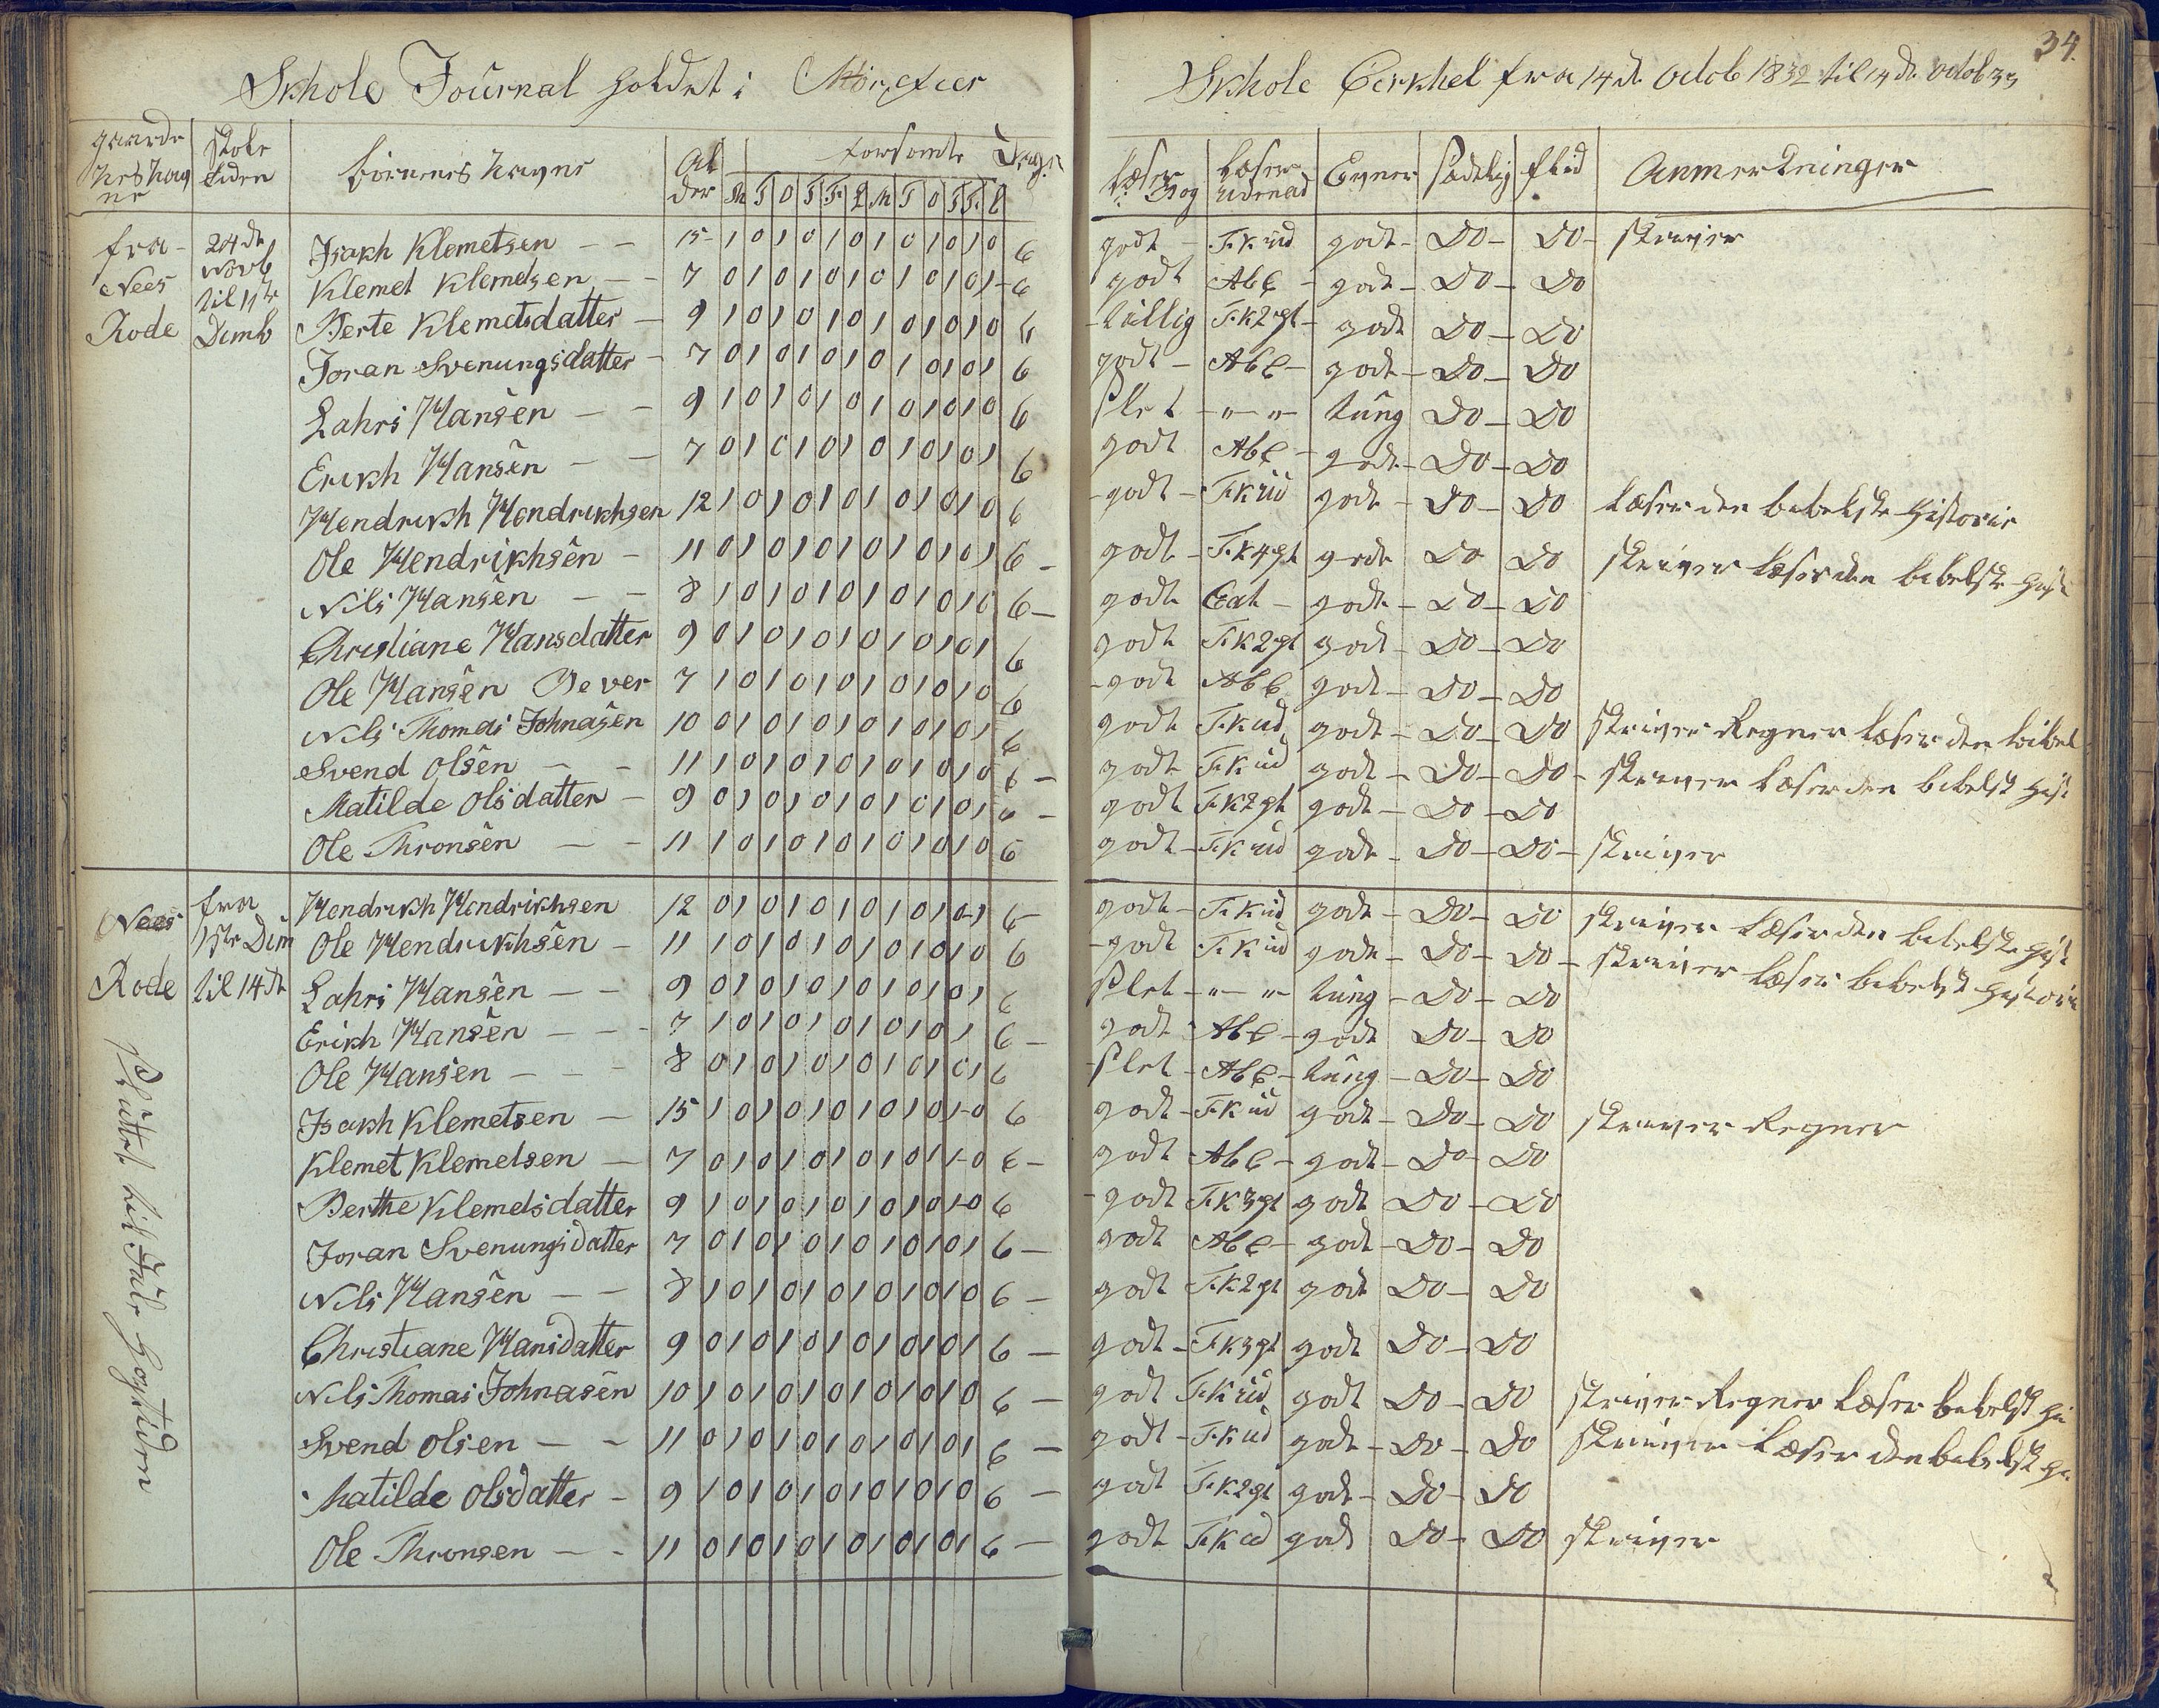 34.
Skhole Journal holdet i Mörefier Skhole Cerkhel fra 14de Octob 1832 til 14de Octob 33
gaarde nes Navne | Skole tiden | börnenes Navne | Al der | forsömte Dage | M T O T Fr L M T O T Fr L | læser i Bog | Læser udenad | Evner | sædelig | flid | Anmerkninger
fra Nees Rode | 24de Novb til 1ste Decmb
Isakh Klemetsen — — 15 1 0 1 0 1 0 1 0 1 0 1 0 6 godt F.K ud godt Do Do skriver
Klemet Klemetsen — — 7 0 1 0 1 0 1 0 1 0 1 0 1 6 godt Abc godt Do Do
Berte Klemetsdatter — 9 1 0 1 0 1 0 1 0 1 0 1 0 6 tillig F.K 2 pt godt Do Do
Joran Svenungsdatter — 7 0 1 0 1 0 1 0 1 0 1 0 1 6 godt Abc godt Do Do
Lahrs Hansen — — 9 1 0 1 0 1 0 1 0 1 0 1 0 6 slet " " tung Do Do
Erikh Hansen — — 7 0 1 0 1 0 1 0 1 0 1 0 1 6 godt Abc godt Do Do
Hendrikh Hendrikhsen 12 1 0 1 0 1 0 1 0 1 0 1 0 6 godt F.K ud godt Do Do læser den bibelske Historie
Ole Hendrikhsen — 11 0 1 0 1 0 1 0 1 0 1 0 1 6 godt F.K 4 pt godt Do Do skriver læser den bibelske Hist
Nils Hansen — — 8 1 0 1 0 1 0 1 0 1 0 1 0 6 godt Cat godt Do Do
Christiane Hansdatter 9 0 1 0 1 0 1 0 1 0 1 0 1 6 godt F.K 2 pt godt Do Do
Ole Hansen Bever 7 1 0 1 0 1 0 1 0 1 0 1 0 6 godt Abc godt Do Do
Nils Thomas Johnasen 10 0 1 0 1 0 1 0 1 0 1 0 1 6 godt F.K ud godt Do Do skriver Regner læser den bibel
Svend Olsen — — 11 1 0 1 0 1 0 1 0 1 0 1 0 6 godt F.K ud godt Do Do skriver læser den bibelsk Hist
Matilde Olsdatter — 9 0 1 0 1 0 1 0 1 0 1 0 1 6 godt F.K 2 pt godt Do Do
Ole Thronsen — — 11 1 0 1 0 1 0 1 0 1 0 1 0 6 godt F.K ud godt Do Do skriver
Nees Rode | fra 1ste Dcm til 14de
Hendrikh Hendrikhsen 12 0 1 0 1 0 1 0 1 0 1 0 1 6 godt F.K ud godt Do Do skriver læser den bibelske Hist
Ole Hendrikhsen — 11 1 0 1 0 1 0 1 0 1 0 1 0 6 godt F.K ud godt Do Do skriver læser bibelsk Historie
Lahrs Hansen — — 9 0 1 0 1 0 1 0 1 0 1 0 1 6 slet " " tung Do Do
Erikh Hansen — — 7 1 0 1 0 1 0 1 0 1 0 1 6 godt Abc godt Do Do
Ole Hansen — — 8 0 1 0 1 0 1 0 1 0 1 0 1 6 slet Abc tung Do Do
Isakh Klemetsen — 15 1 0 1 0 1 0 1 0 1 0 1 0 6 godt F.K ud godt Do Do skriver Regner
Klemet Klemetsen — 7 0 1 0 1 0 1 0 1 0 1 1 0 6 godt Abc godt Do Do
Berthe Klemetsdatter 9 1 0 1 0 1 0 1 0 1 0 1 0 6 godt F.K 3 pt godt Do Do
Joran Svenungsdatter 7 0 1 0 1 0 1 0 1 0 1 0 1 6 godt Abc godt Do Do
Nils Hansen — — 8 1 0 1 0 1 0 1 0 1 0 1 0 6 godt F.K 2 pt godt Do Do
Christiane Hansdatter 9 0 1 0 1 0 1 0 1 0 1 0 1 6 godt F.K 3 pt godt Do Do
Nils Thomas Johnasen 10 1 0 1 0 1 0 1 0 1 0 1 0 6 godt F.K ud godt Do Do skriver Regner læser bibelsk Hi
Svend Olsen — — 11 0 1 0 1 0 1 0 1 0 1 0 1 6 godt F.K ud godt Do Do skriver læser den bibelsk Hi
Matilde Olsdatter — 9 1 0 1 0 1 0 1 0 1 0 1 0 6 godt F.K 2 pt godt Do Do
Ole Thronsen — — 11 0 1 0 1 0 1 0 1 0 1 0 1 6 godt F.K ud godt Do Do skriver
sluttet til Jule Høytiden